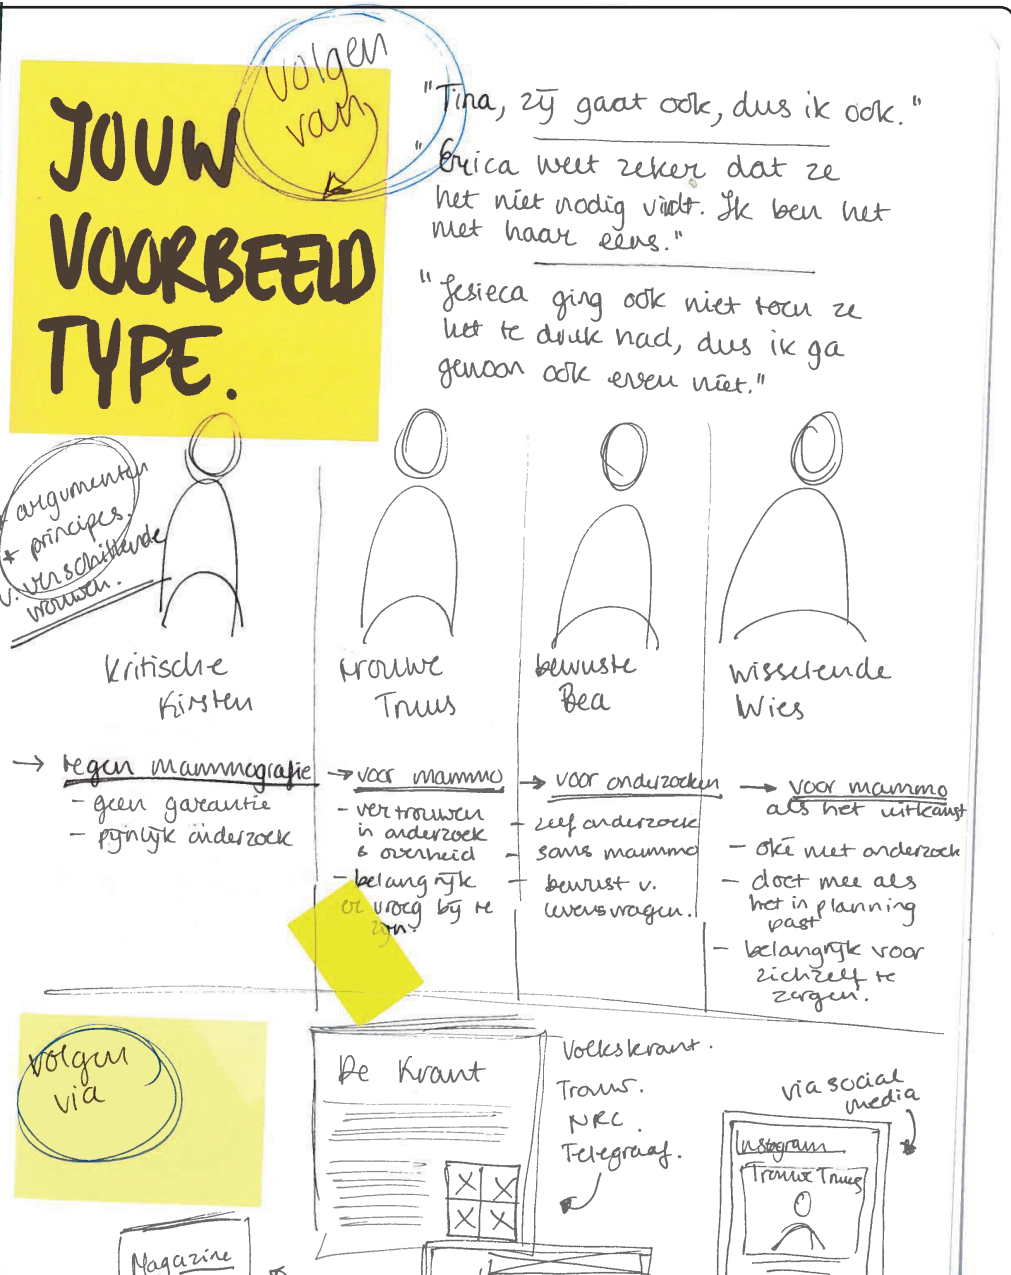 volgen
van
JOUW
VOORBEELD
TYPE.
"Tina, zij gaat ook, dus ik ook."
"Erica weet zeker dat ze
het niet nodig vindt. Ik ben het
met haar eens."
"Jesieca ging ook niet toen ze
het te druk had, dus ik ga
gewoon ook even niet."
* argumenten
* principes.
v. verschillende
vrouwen.
Kritische
Kirsten
trouwe
Truus
bewuste
Bea
wisselende
Wies
→ tegen mammografie
- geen garantie
- pijnlijk onderzoek
→ voor mammo
- vertrouwen
in onderzoek
& overheid
- belangrijk
er vroeg bij te
zijn.
→ voor onderzoeken
- zelf onderzoek
- soms mammo
- bewust v.
levensvragen.
→ voor mammo
als het uitkomst
- oké met onderzoek
- doet mee als
het in planning
past
- belangrijk voor
zichzelf te
zorgen.
volgen
via
De Krant
Volkskrant.
Trouw.
NRC.
Telegraaf.
via social
media
Instagram
Trouwe Truus
Magazine